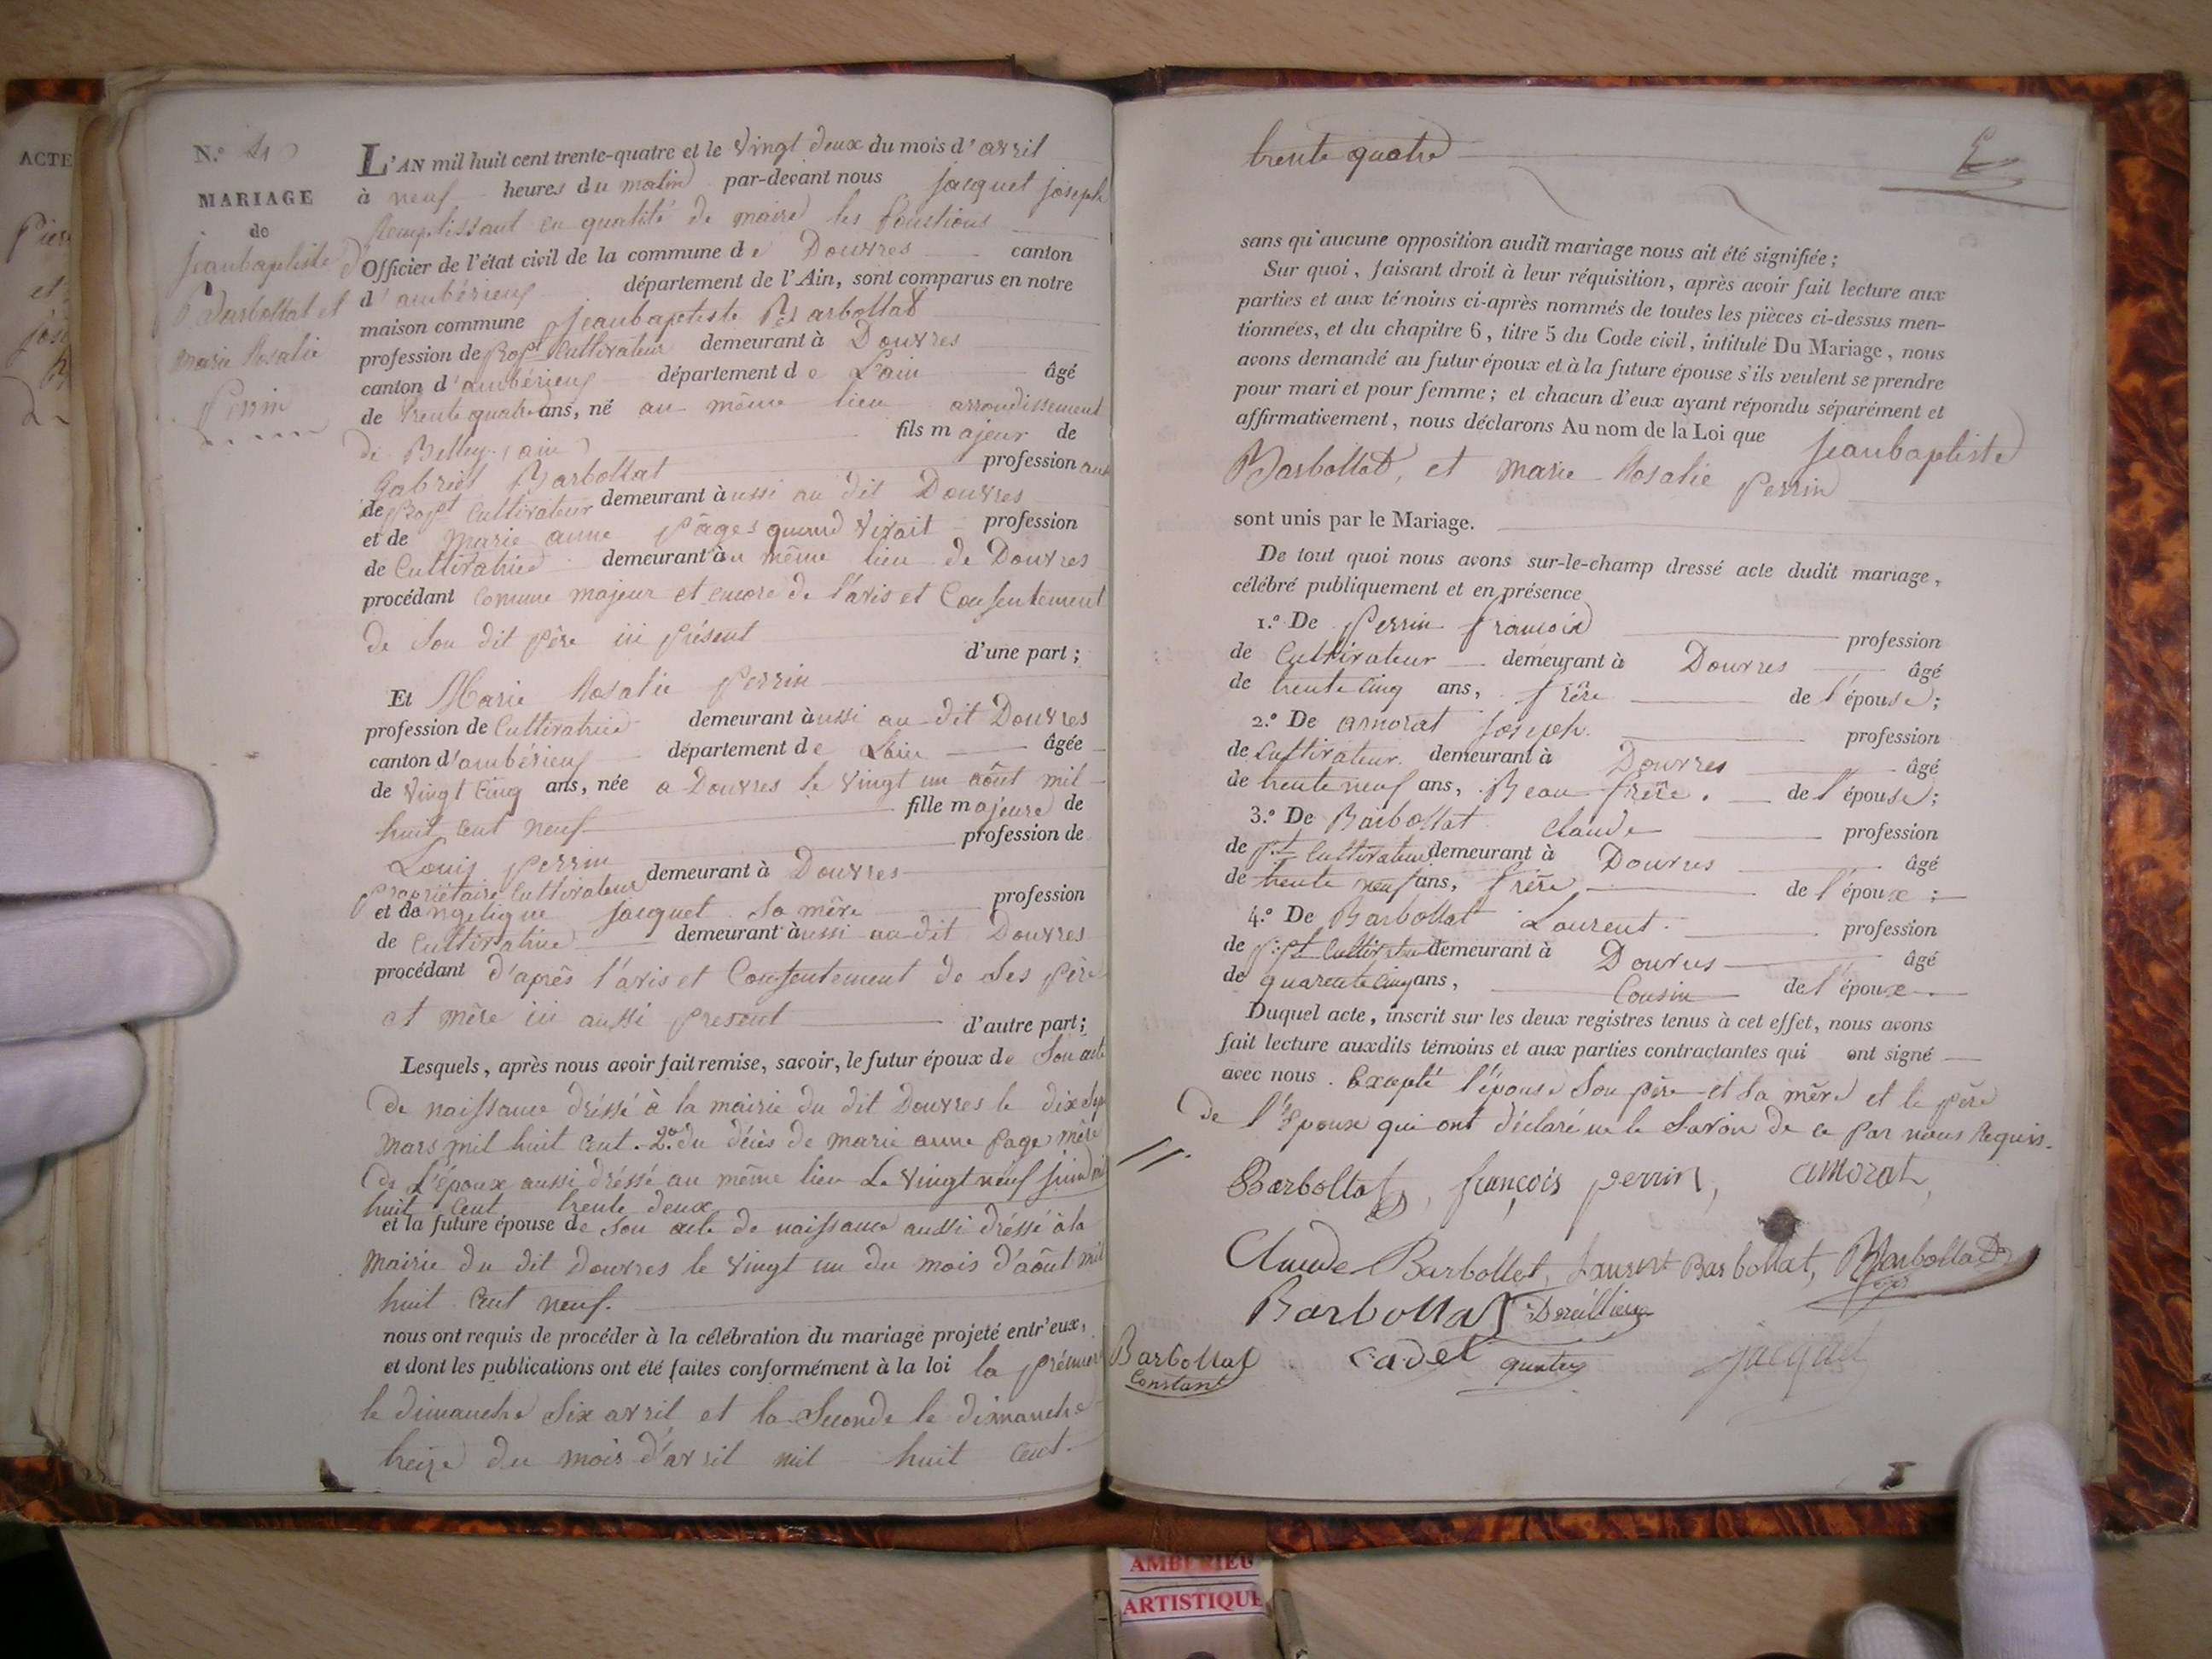 ACTE
N.º 4
MARIAGE
de
jeanbaptiste
Barbollat et
marie Rosalie
Perrin
L'AN mil huit cent trente-quatre et le vingt deux du mois d'avril
à neuf heures du matin par-devant nous jacquet joseph
Remplissant en qualité de maire les fonctions
Officier de l'état civil de la commune de Douvres canton
d'ambérieux département de l'Ain, sont comparus en notre
maison commune jeanbaptiste Barbollat
profession de Propt Cultivateur demeurant à Douvres
canton d'ambérieux département de Lain âgé
de trente quatre ans, né au même lieu arrondissement
de Belley (ain) fils majeur de
Gabriel Barbollat profession
de Propt Cultivateur demeurant aussi au dit Douvres
et de Marie anne Pâges quand vivait profession
de Cultivatrice demeurant au même lieu de Douvres
procédant comme majeur et encore de l'avis et Consentement
de Son dit Père ici présent
d'une part ;
Et Marie Rosalie Perrin
profession de Cultivatrice demeurant aussi au dit Douvres
canton d'ambérieux département de Lain âgée
de vingt Cinq ans, née a Douvres le vingt un aôut mil
huit Cent neuf fille majeure de
Louis Perrin profession de
Propriétaire Cultivateur demeurant à Douvres
et dangelique jacquet sa mère profession
de Cultivatrice demeurant aussi au dit Douvres
procédant d'après l'avis et Consentement de Ses Père
et mère ici aussi présent d'autre part ;
Lesquels, après nous avoir fait remise, savoir, le futur époux de Son acte
de naissance dréssé à la mairie du dit Douvres le dix
mars mil huit Cent. 2º du décès de marie anne Page mère
de L'époux aussi dréssé au même lieu Le vingt neuf juin
huit Cent trente deux
et la future épouse de Son acte de naissance aussi dréssé à la
Mairie du dit Douvres le vingt un du mois d'aôut mil
huit Cent neuf.
nous ont requis de procéder à la célébration du mariage projeté entr'eux,
et dont les publications ont été faites conformément à la loi la première
le dimanche Six avril et la Seconde le dimanche
treize du mois d'avril mil huit Cent
trente quatre
sans qu'aucune opposition audit mariage nous ait été signifiée ;
Sur quoi, faisant droit à leur réquisition, après avoir fait lecture aux
parties et aux témoins ci-après nommés de toutes les pièces ci-dessus men-
tionnées, et du chapitre 6, titre 5 du Code civil, intitulé Du Mariage, nous
avons demandé au futur époux et à la future épouse s'ils veulent se prendre
pour mari et pour femme ; et chacun d'eux ayant répondu séparément et
affirmativement, nous déclarons Au nom de la Loi que jeanbaptiste
Barbollat, et marie Rosalie Perrin
sont unis par le Mariage.
De tout quoi nous avons sur-le-champ dressé acte dudit mariage,
célébré publiquement et en présence
1.º De Perrin françois profession
de Cultivateur demeurant à Douvres âgé
de trente Cinq ans, frère de l'épouse ;
2.º De amorat Joseph profession
de Cultivateur demeurant à Douvres âgé
de trente neuf ans, Beau frère de l'épouse ;
3.º De Barbollat Claude profession
de pt Cultivateur demeurant à Douvres âgé
de trente neuf ans, frère de l'époux ;
4.º De Barbollat Laurent profession
de ppt Cultivateur demeurant à Douvres âgé
de quarente Cinq ans, Cousin de l'époux
Duquel acte, inscrit sur les deux registres tenus à cet effet, nous avons
fait lecture auxdits témoins et aux parties contractantes qui ont signé
avec nous. Excepté l'épouse Son père et Sa mère et le père
de l'époux qui ont déclaré ne le Savoir de ce par nous Requis.
Barbollat, françois perrin, amorat,
Claude Barbollet, Laurent Barbollat, Barbollat
Barbollat
Barbollat Cadet jacquet
Constant
AMBERIEU
ARTISTIQUE